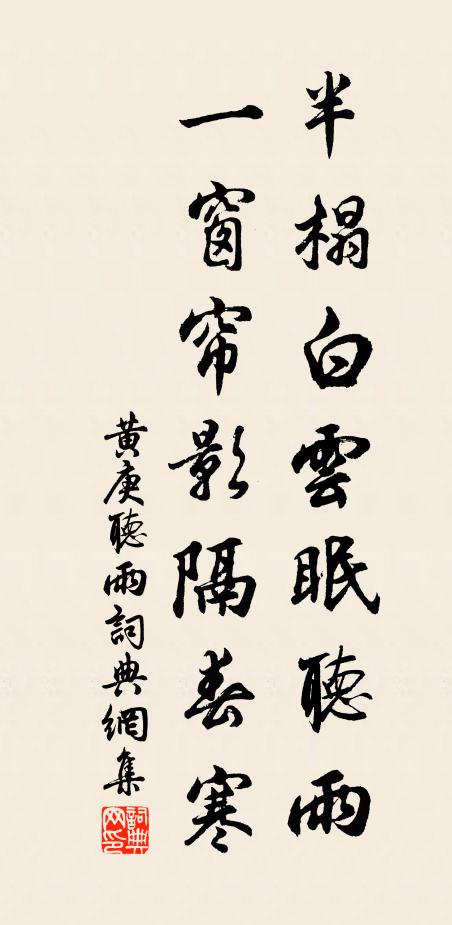 半榻白雲眠聽雨
一窗帘影隔春寒
黄庚聽雨詞典網集
詞典网印